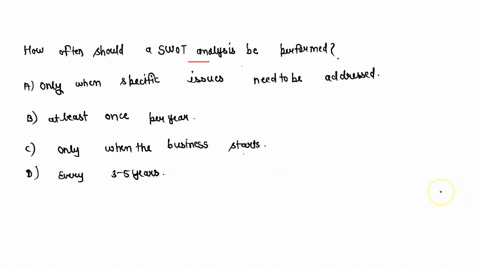 How often should a SWOT analysis be performed?.
A) Only when specific issues need to be addressed.
B) at least once per year.
C) Only when the business starts.
D) Every 3-5 years.